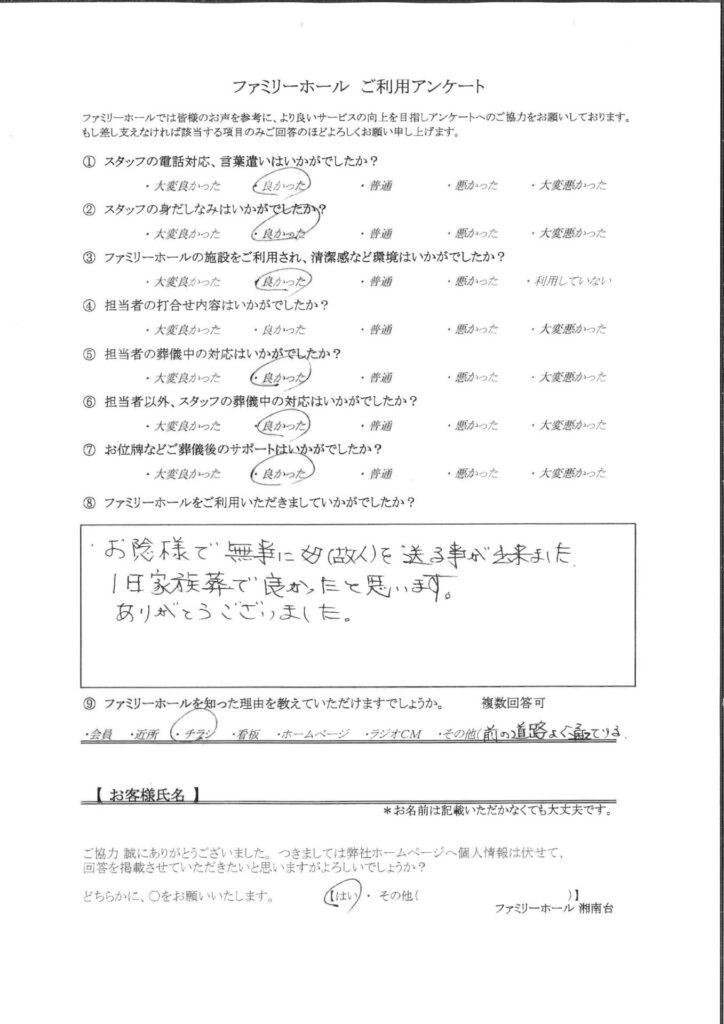 ファミリーホール ご利用アンケート
ファミリーホールでは皆様のお声を参考に、より良いサービスの向上を目指しアンケートへのご協力をお願いしております。
もし差し支えなければ該当する項目のみご回答のほどよろしくお願い申し上げます。
① スタッフの電話対応、言葉遣いはいかがでしたか？
・大変良かった ・良かった ・普通 ・悪かった ・大変悪かった
② スタッフの身だしなみはいかがでしたか？
・大変良かった ・良かった ・普通 ・悪かった ・大変悪かった
③ ファミリーホールの施設をご利用され、清潔感など環境はいかがでしたか？
・大変良かった ・良かった ・普通 ・悪かった ・利用していない
④ 担当者の打合せ内容はいかがでしたか？
・大変良かった ・良かった ・普通 ・悪かった ・大変悪かった
⑤ 担当者の葬儀中の対応はいかがでしたか？
・大変良かった ・良かった ・普通 ・悪かった ・大変悪かった
⑥ 担当者以外、スタッフの葬儀中の対応はいかがでしたか？
・大変良かった ・良かった ・普通 ・悪かった ・大変悪かった
⑦ お位牌などご葬儀後のサポートはいかがでしたか？
・大変良かった ・良かった ・普通 ・悪かった ・大変悪かった
⑧ ファミリーホールをご利用いただきましていかがでしたか？
・お陰様で無事に(故人)を送る事が出来ました.
1日家族葬で良かったと思います。
ありがとうございました。
⑨ ファミリーホールを知った理由を教えていただけますでしょうか。 複数回答可
・会員 ・近所 ・チラシ ・看板 ・ホームページ ・ラジオCM ・その他(前の道路よく通っている
【 お客様氏名 】
＊お名前は記載いただかなくても大丈夫です。
ご協力 誠にありがとうございました。つきましては弊社ホームページへ個人情報は伏せて、
回答を掲載させていただきたいと思いますがよろしいでしょうか？
どちらかに、○をお願いいたします。 【はい ・ その他( )】
ファミリーホール 湘南台